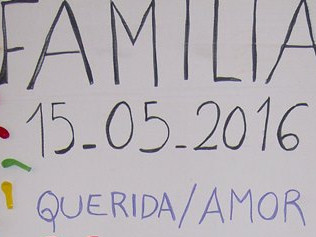 FAMILIA
15-05-2016
QUERIDA/AMOR